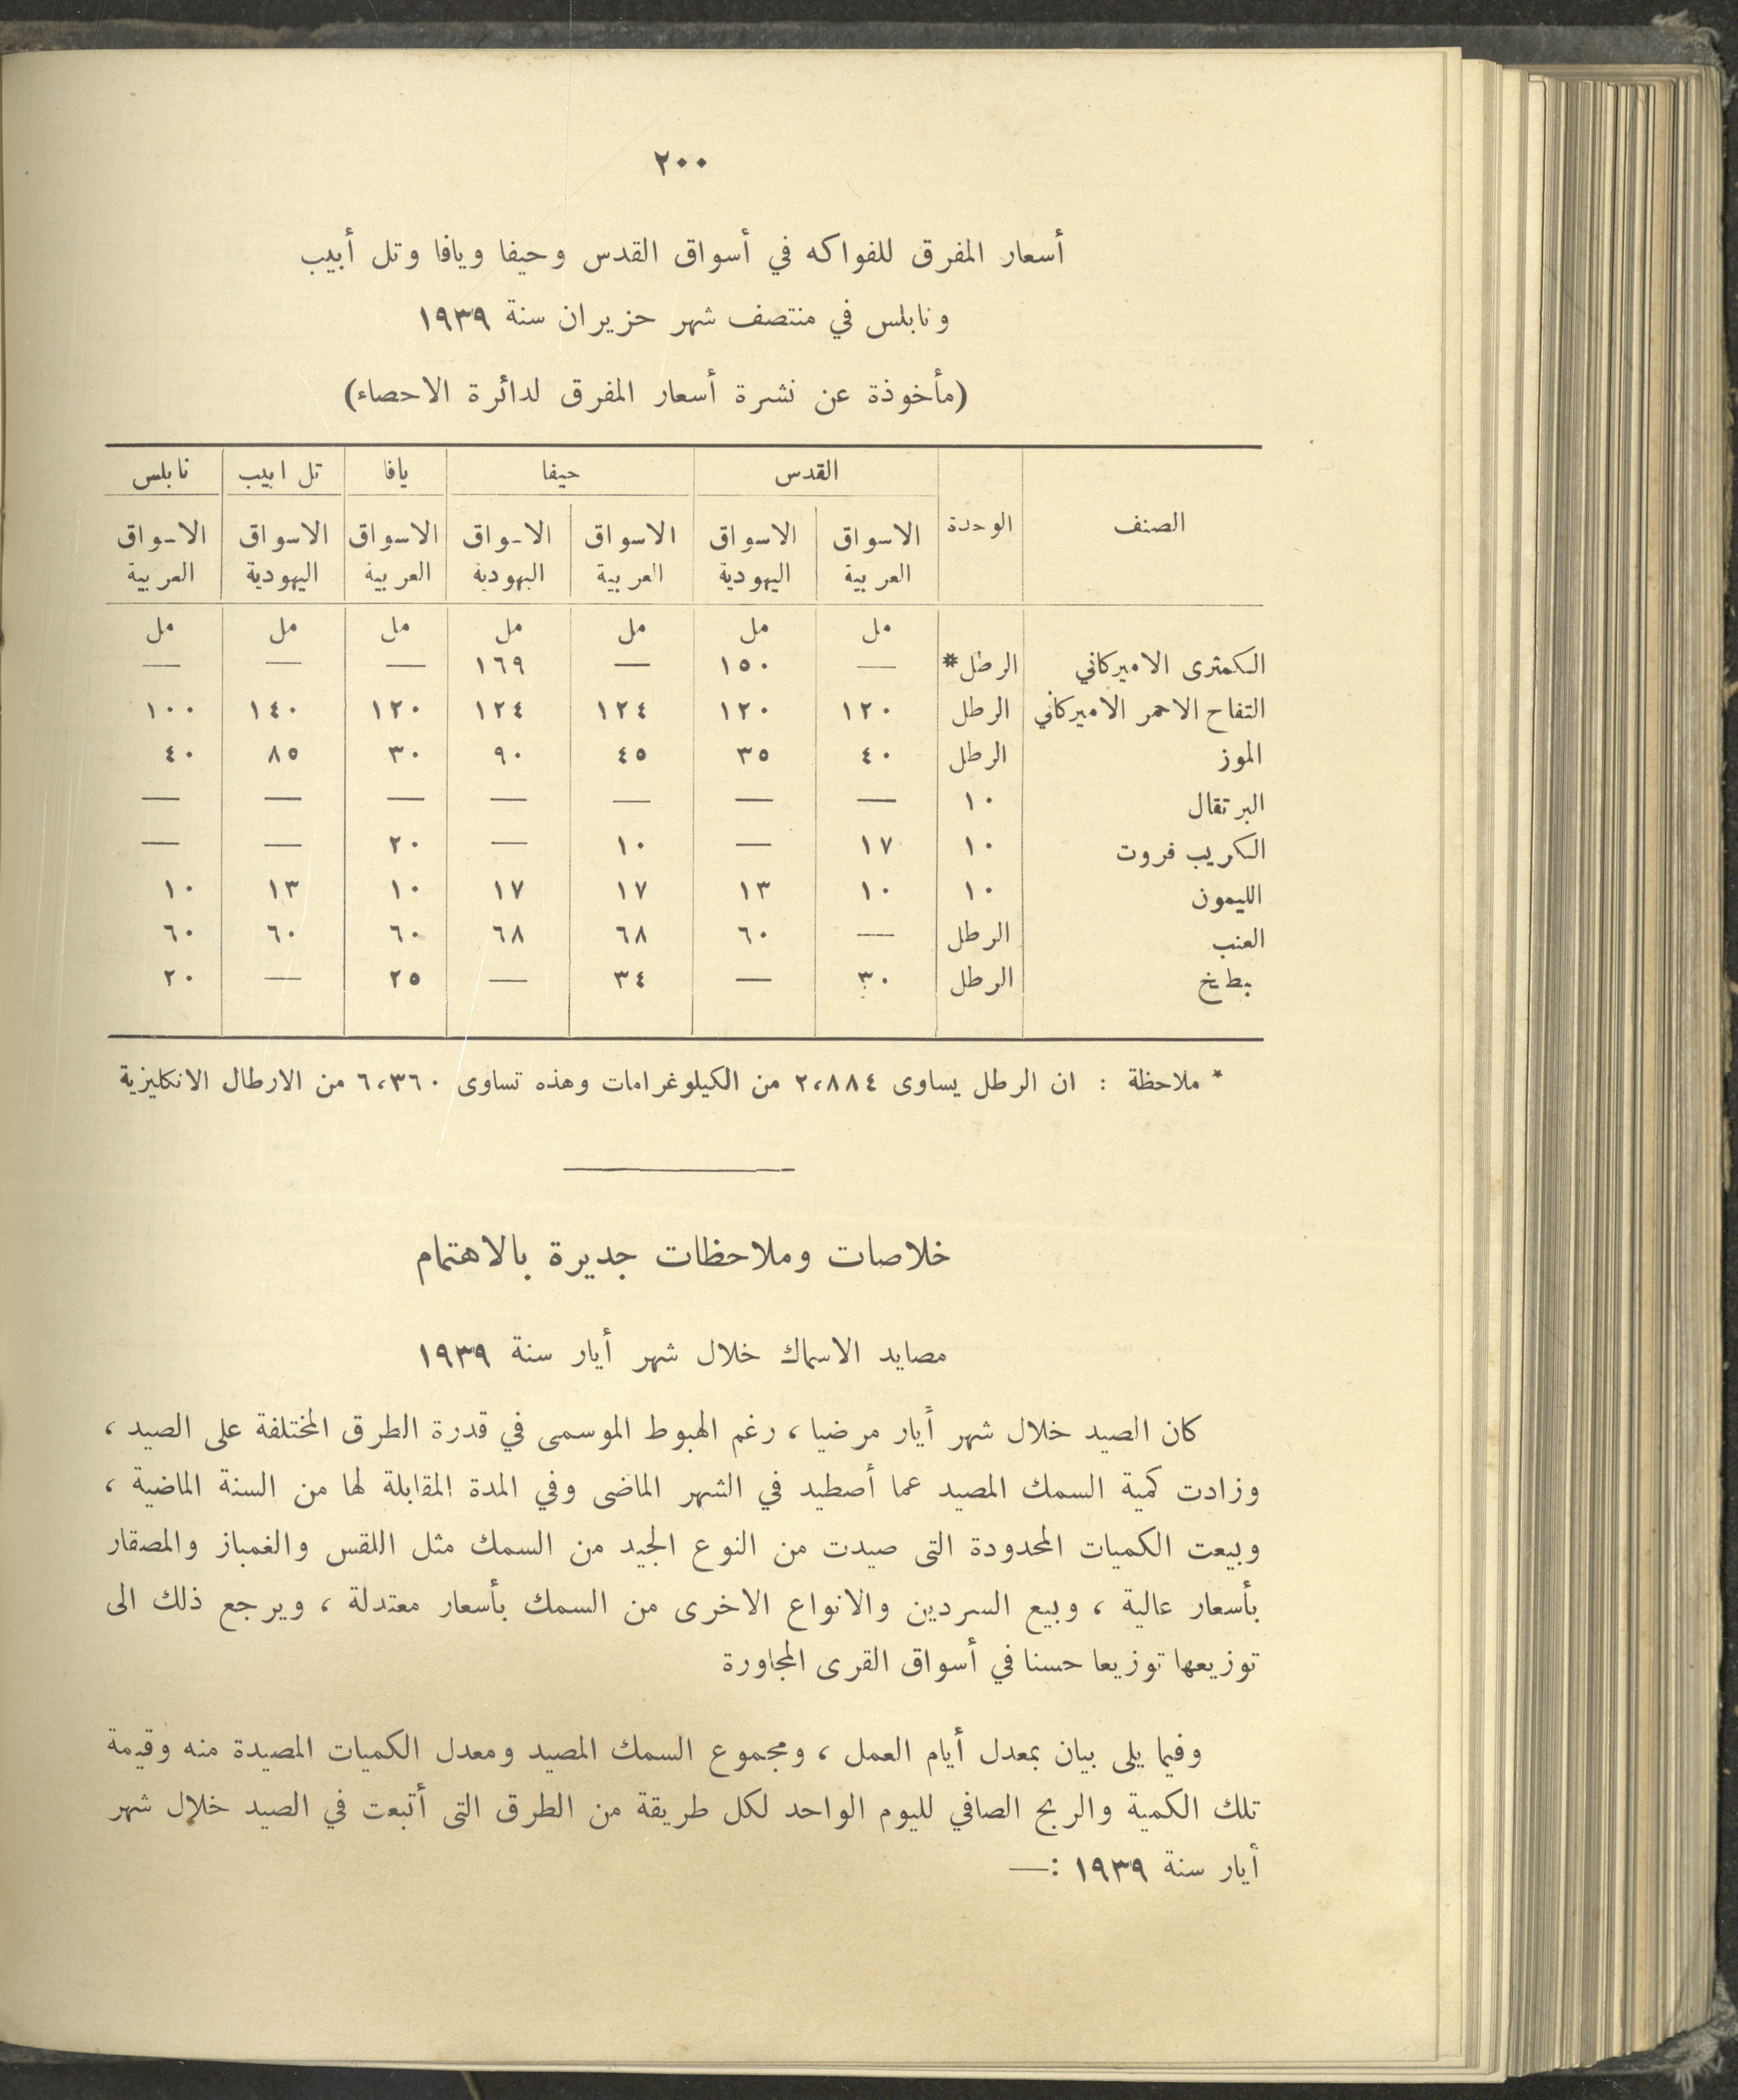 ٢٠٠
أسعار المفرق للفواكه في أسواق القدس وحيفا ويافا وتل أبيب
ونابلس في منتصف شهر حزيران سنة ١٩٣٩
(مأخوذة عن نشرة أسعار المفرق لدائرة الاحصاء)
الصنف الوحدة القدس حيفا يافا تل ابيب نابلس
الاسواق الاسواق الاسواق الاسواق الاسواق الاسواق الاسواق
العربية اليهودية العربية اليهودية العربية اليهودية العربية
مل مل مل مل مل مل مل
الكمثرى الاميركاني الرطل* — ١٥٠ — ١٦٩ — — —
التفاح الاحمر الاميركاني الرطل ١٢٠ ١٢٠ ١٢٤ ١٢٤ ١٢٠ ١٤٠ ١٠٠
الموز الرطل ٤٠ ٣٥ ٤٥ ٩٠ ٣٠ ٨٥ ٤٠
البرتقال ١٠ — — — — — — —
الكريب فروت ١٠ ١٧ — ١٠ — ٢٠ — —
الليمون ١٠ ١٠ ١٣ ١٧ ١٧ ١٠ ١٣ ١٠
العنب الرطل — ٦٠ ٦٨ ٦٨ ٦٠ ٦٠ ٦٠
بطيخ الرطل ٣٠ — ٣٤ — ٢٥ — ٢٠
* ملاحظة : ان الرطل يساوى ٢،٨٨٤ من الكيلوغرامات وهذه تساوى ٦،٣٦٠ من الارطال الانكليزية
خلاصات وملاحظات جديرة بالاهتمام
مصايد الاسماك خلال شهر أيار سنة ١٩٣٩
كان الصيد خلال شهر أيار مرضيا ، رغم الهبوط الموسمى في قدرة الطرق المختلفة على الصيد ،
وزادت كمية السمك المصيد عما أصطيد في الشهر الماضى وفي المدة المقابلة لها من السنة الماضية ،
وبيعت الكميات المحدودة التى صيدت من النوع الجيد من السمك مثل اللقس والغمباز والمصقار
بأسعار عالية ، وبيع السردين والانواع الاخرى من السمك بأسعار معتدلة ، ويرجع ذلك الى
توزيعها توزيعا حسنا في أسواق القرى المجاورة
وفيما يلى بيان بمعدل أيام العمل ، ومجموع السمك المصيد ومعدل الكميات المصيدة منه وقيمة
تلك الكمية والربح الصافي لليوم الواحد لكل طريقة من الطرق التى أتبعت في الصيد خلال شهر
أيار سنة ١٩٣٩ :—